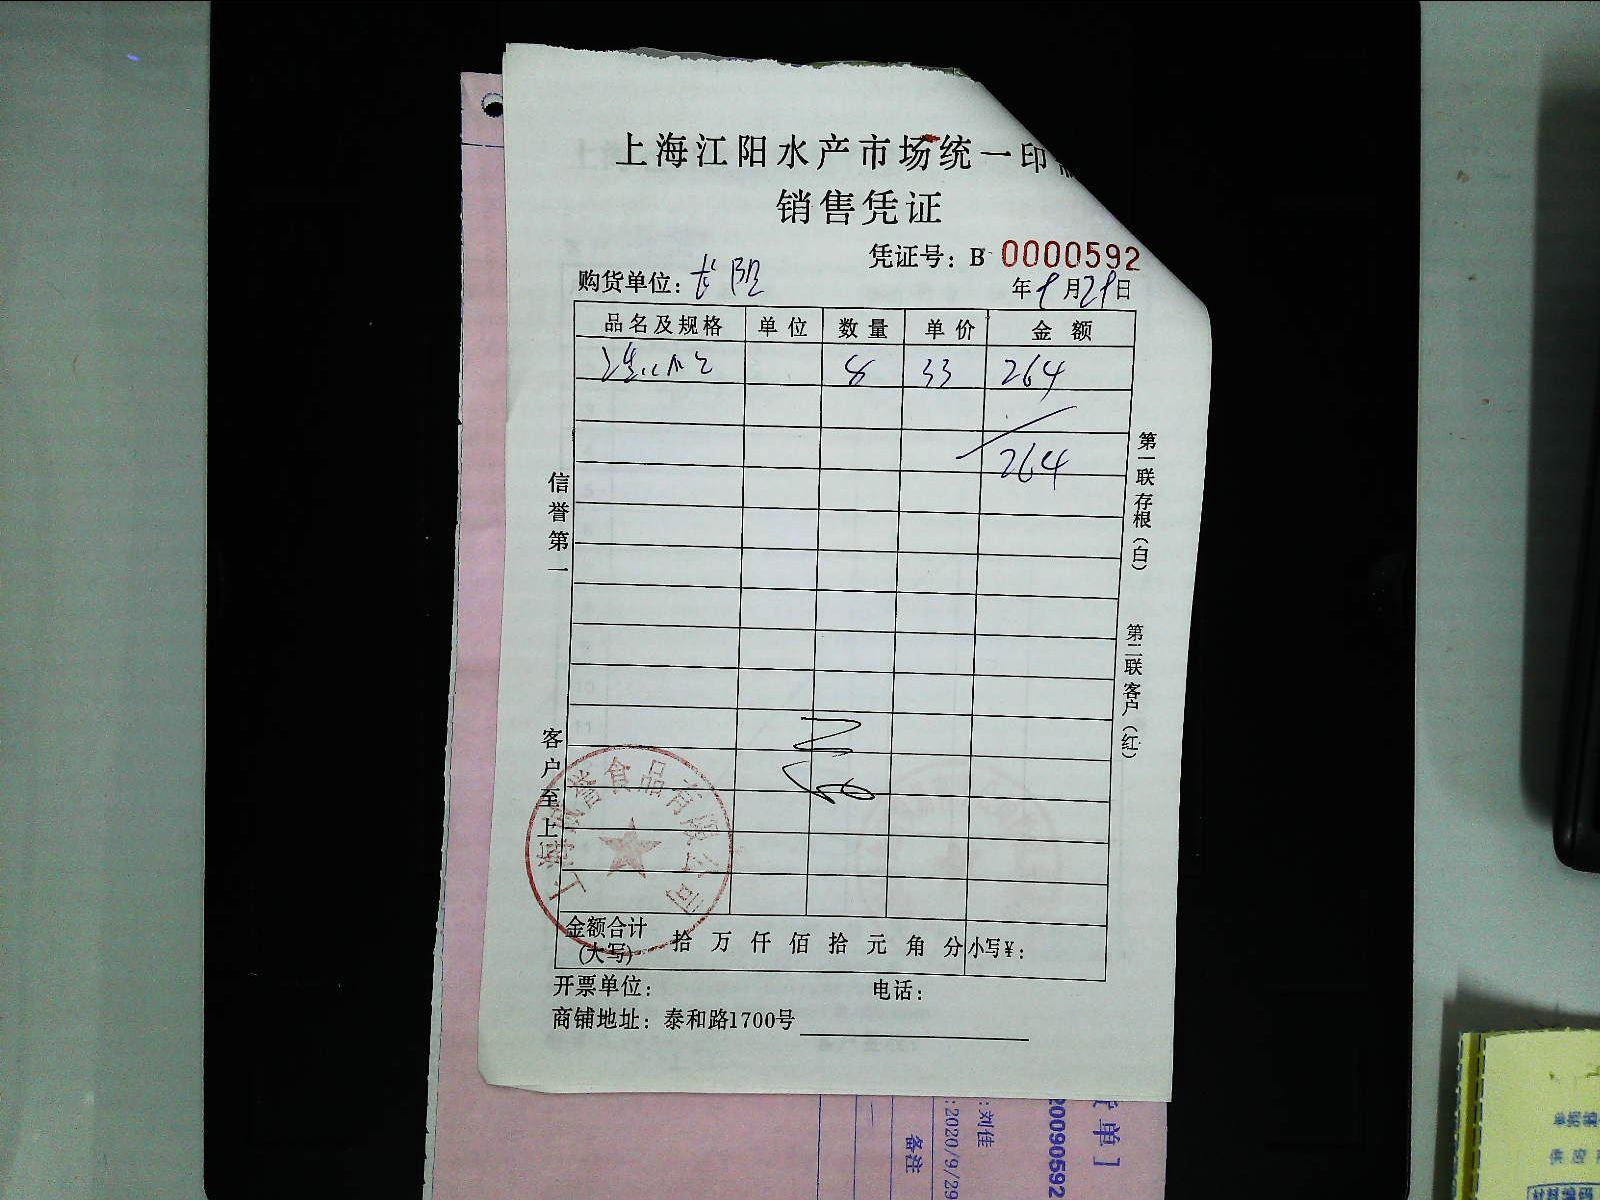 上海江阳水产市场统一印
销售凭证
凭证号：B 0000592
购货单位：长阳 年9月29日
品名及规格 单位 数量 单价 金额
8 33 264
264
信誉第一
客户至上
第一联存根（白）
第二联客户（红）
上海 誉食品有限公司
金额合计（大写） 拾 万 仟 佰 拾 元 角 分 小写¥：
开票单位： 电话：
商铺地址：泰和路1700号
单］
20090592
：刘佳
：2020/9/29
备注
一
单据编
供应
材料编码